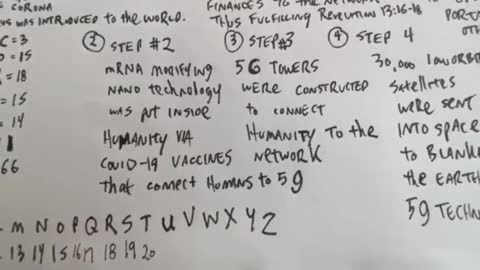 CORONA
FINANCES TO THE NETWORK
INS WAS INTRODUCED TO THE WORLD.
THUS FULFILLING REVELUTION 13:16-18
C=3
O=15
R=18
=15
=14
1
66
② STEP #2
mRNA MODIFYING
NANO TECHNOLOGY
WAS PUT INSIDE
HUMANITY VIA
COVID-19 VACCINES
that CONNECT HUMANS to 5g
③ STEP#3
5G TOWERS
WERE CONSTRUCTED
to CONNECT
HUMANITY TO the
NETWORK
④ STEP 4
30,000 LOW ORBIT
Satellites
WERE SENT
INTO SPACE
to BLANKE
the EARTH
5g TECHN
M N O P Q R S T U V W X Y Z
13 14 15 16 17 18 19 20